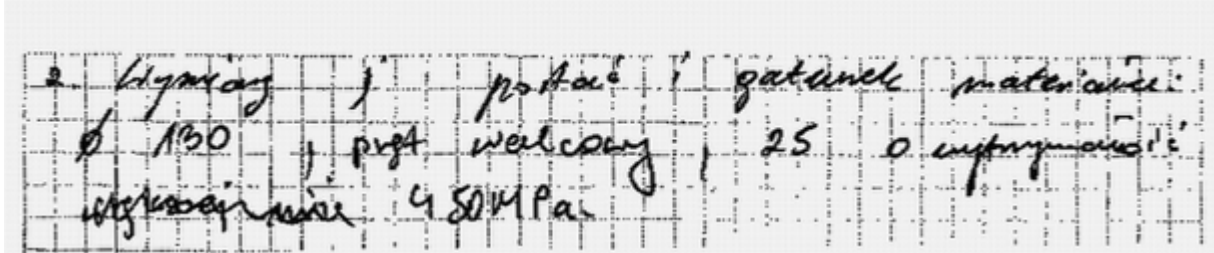 2. Wymiary, postać i gatunek materiału:
ϕ 130, pręt walcowy, 25 o wytrzymałość
450MPa.